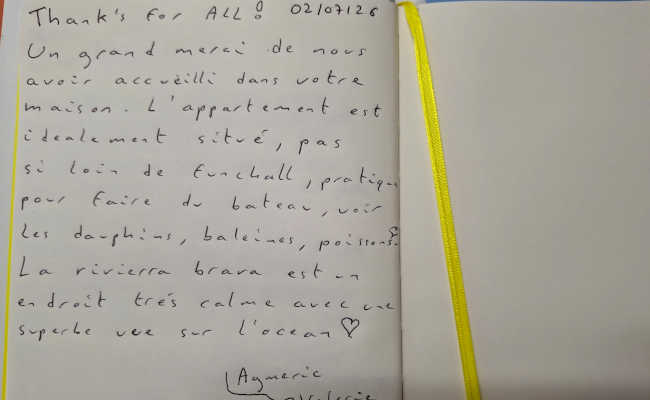 Thank's for ALL! 02/07/26
Un grand merci de nous
avoir accuéilli dans votre
maison. L'appartement est
idealement situé, pas
si loin de funchall, pratique
pour faire du bateau, voir
les dauphins, baleines, poissons.
La rivierra brava est un
endroit trés calme avec une
superbe vue sur l'ocean ♡
Aymeric